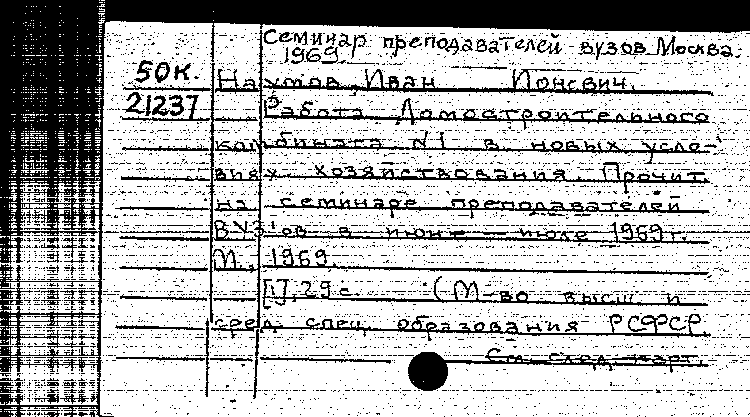 Семинар преподавателей вузов Москва.
1969.
50к. Наумов, Иван Ионович.
21237 Работа Домостроительного
комбината №1 в новых усло-
виях хозяйствования. Прочит.
на семинаре преподавателей
ВУЗ'ов в июне — июле 1969 г.
М., 1969.
[1], 29 с. (М-во высш. и
сред. спец. образования РСФСР.
См. след. карт.